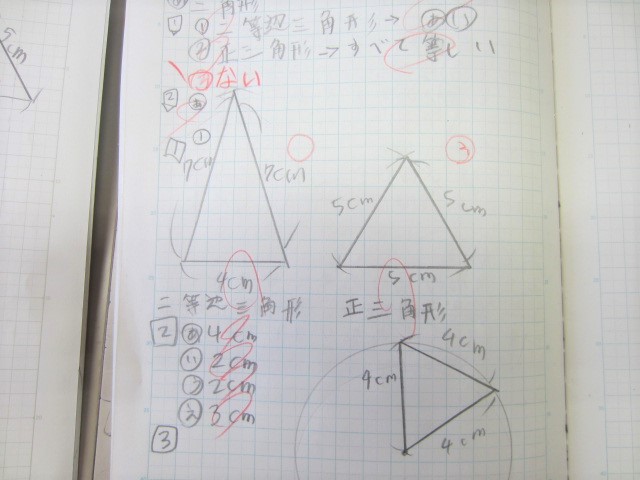 二等辺三角形→ あ い
正三角形→すべて等しい
ない
2 あ
1
7cm
7cm
4cm
二等辺三角形
5cm
5cm
5cm
正三角形
2 あ 4cm
い 2cm
う 2cm
え 3cm
3
4cm
4cm
4cm
5cm